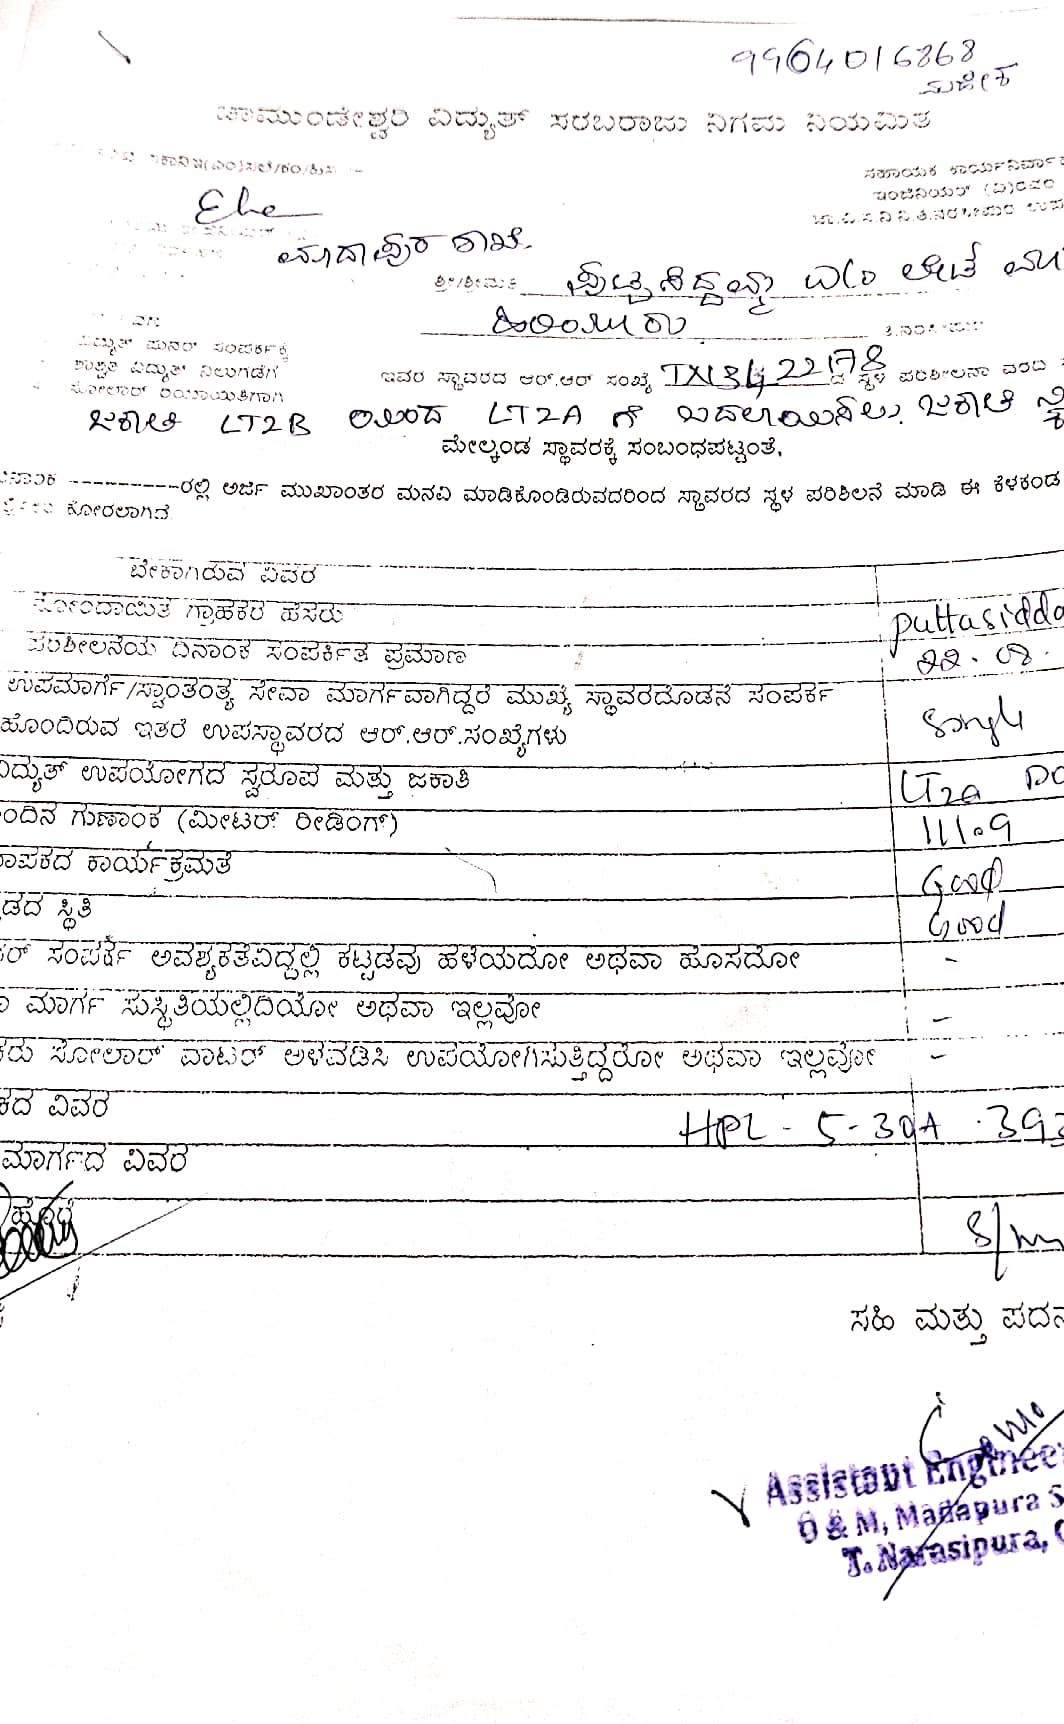 9964016868
ಚಾಮುಂಡೇಶ್ವರಿ ವಿದ್ಯುತ್ ಸರಬರಾಜು ನಿಗಮ ನಿಯಮಿತ
ಸಹಾಯಕ ಕಾರ್ಯನಿರ್ವಾ
ಇಂಜಿನಿಯರ್ (ವಿ)ರವರ
ಮಾದಾಪುರ ಶಾಖೆ.
ಶ್ರೀ/ಶ್ರೀಮತಿ
ವಿದ್ಯುತ್ ಮರು ಸಂಪರ್ಕಕ್ಕೆ
ಶಾಶ್ವತ ವಿದ್ಯುತ್ ನಿಲುಗಡೆಗೆ
ಸೋಲಾರ್ ರಿಯಾಯಿತಿಗಾಗಿ
ಇವರ ಸ್ಥಾವರದ ಆರ್.ಆರ್ ಸಂಖ್ಯೆ ಸ್ಥಳ ಪರಿಶೀಲನಾ ವರದಿ
ಜಕಾತಿ LT2B ಯಿಂದ LT2A ಗೆ ಬದಲಾಯಿಸಲು. ಜಕಾತಿ
ಮೇಲ್ಕಂಡ ಸ್ಥಾವರಕ್ಕೆ ಸಂಬಂಧಪಟ್ಟಂತೆ,
ನಾಂಕ ----------ರಲ್ಲಿ ಅರ್ಜಿ ಮುಖಾಂತರ ಮನವಿ ಮಾಡಿಕೊಂಡಿರುವದರಿಂದ ಸ್ಥಾವರದ ಸ್ಥಳ ಪರಿಶಿಲನೆ ಮಾಡಿ ಈ ಕೆಳಕಂಡ
ಕೋರಲಾಗಿದೆ
ಬೇಕಾಗಿರುವ ವಿವರ
ನೋಂದಾಯಿತ ಗ್ರಾಹಕರ ಹೆಸರು puttasidda
ಪರಿಶೀಲನೆಯ ದಿನಾಂಕ ಸಂಪರ್ಕಿತ ಪ್ರಮಾಣ 22.08.
ಉಪಮಾರ್ಗ/ಸ್ವಾಂತಂತ್ಯ ಸೇವಾ ಮಾರ್ಗವಾಗಿದ್ದರೆ ಮುಖ್ಯ ಸ್ಥಾವರದೊಡನೆ ಸಂಪರ್ಕ
ಹೊಂದಿರುವ ಇತರೆ ಉಪಸ್ಥಾವರದ ಆರ್.ಆರ್.ಸಂಖ್ಯೆಗಳು
ವಿದ್ಯುತ್ ಉಪಯೋಗದ ಸ್ವರೂಪ ಮತ್ತು ಜಕಾತಿ LT2a
ಂದಿನ ಗುಣಾಂಕ (ಮೀಟರ್ ರೀಡಿಂಗ್) 11109
ಾಪಕದ ಕಾರ್ಯಕ್ರಮತೆ Good
ಡದ ಸ್ಥಿತಿ Good
ರ್ ಸಂಪರ್ಕ ಅವಶ್ಯಕತೆವಿದ್ದಲ್ಲಿ ಕಟ್ಟಡವು ಹಳೆಯದೋ ಅಥವಾ ಹೊಸದೋ -
ಮಾರ್ಗ ಸುಸ್ಥಿತಿಯಲ್ಲಿದಿಯೋ ಅಥವಾ ಇಲ್ಲವೋ -
ಕರು ಸೋಲಾರ್ ವಾಟರ್ ಅಳವಡಿಸಿ ಉಪಯೋಗಿಸುತ್ತಿದ್ದರೋ ಅಥವಾ ಇಲ್ಲವೋ -
ಕದ ವಿವರ HPL - 5-30A .393
ಮಾರ್ಗದ ವಿವರ
ಸಹಿ ಮತ್ತು ಪದನ
Assistant Engineer
O & M, Madapura S
T. Narasipura, C